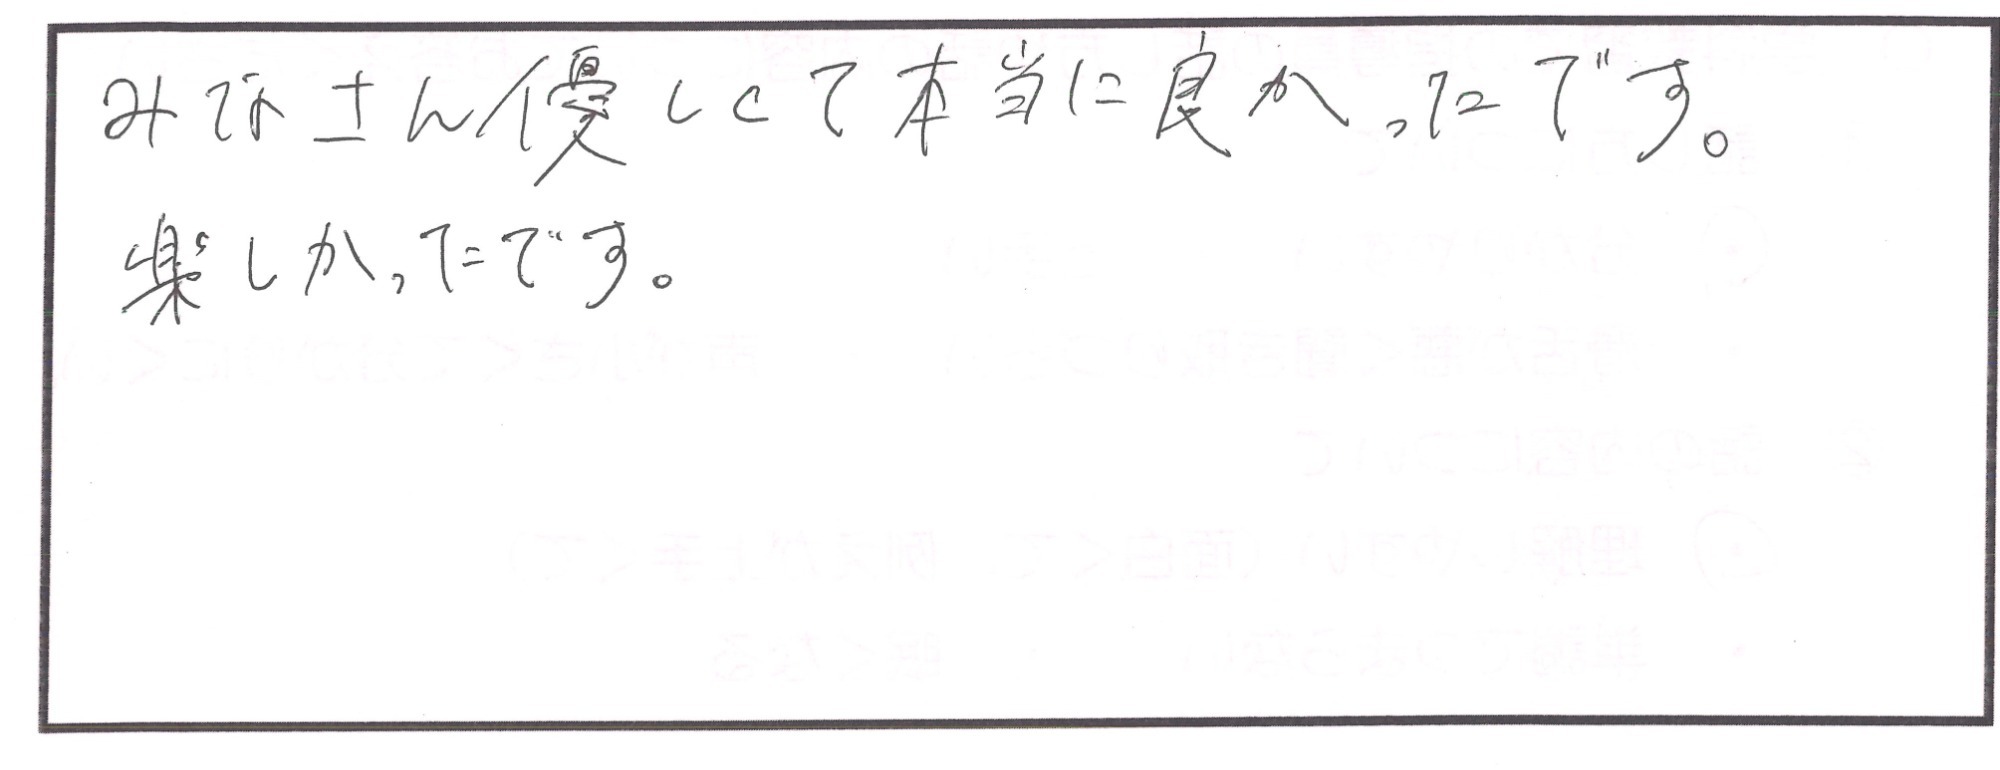 みなさん優しくて本当に良かったです。
楽しかったです。